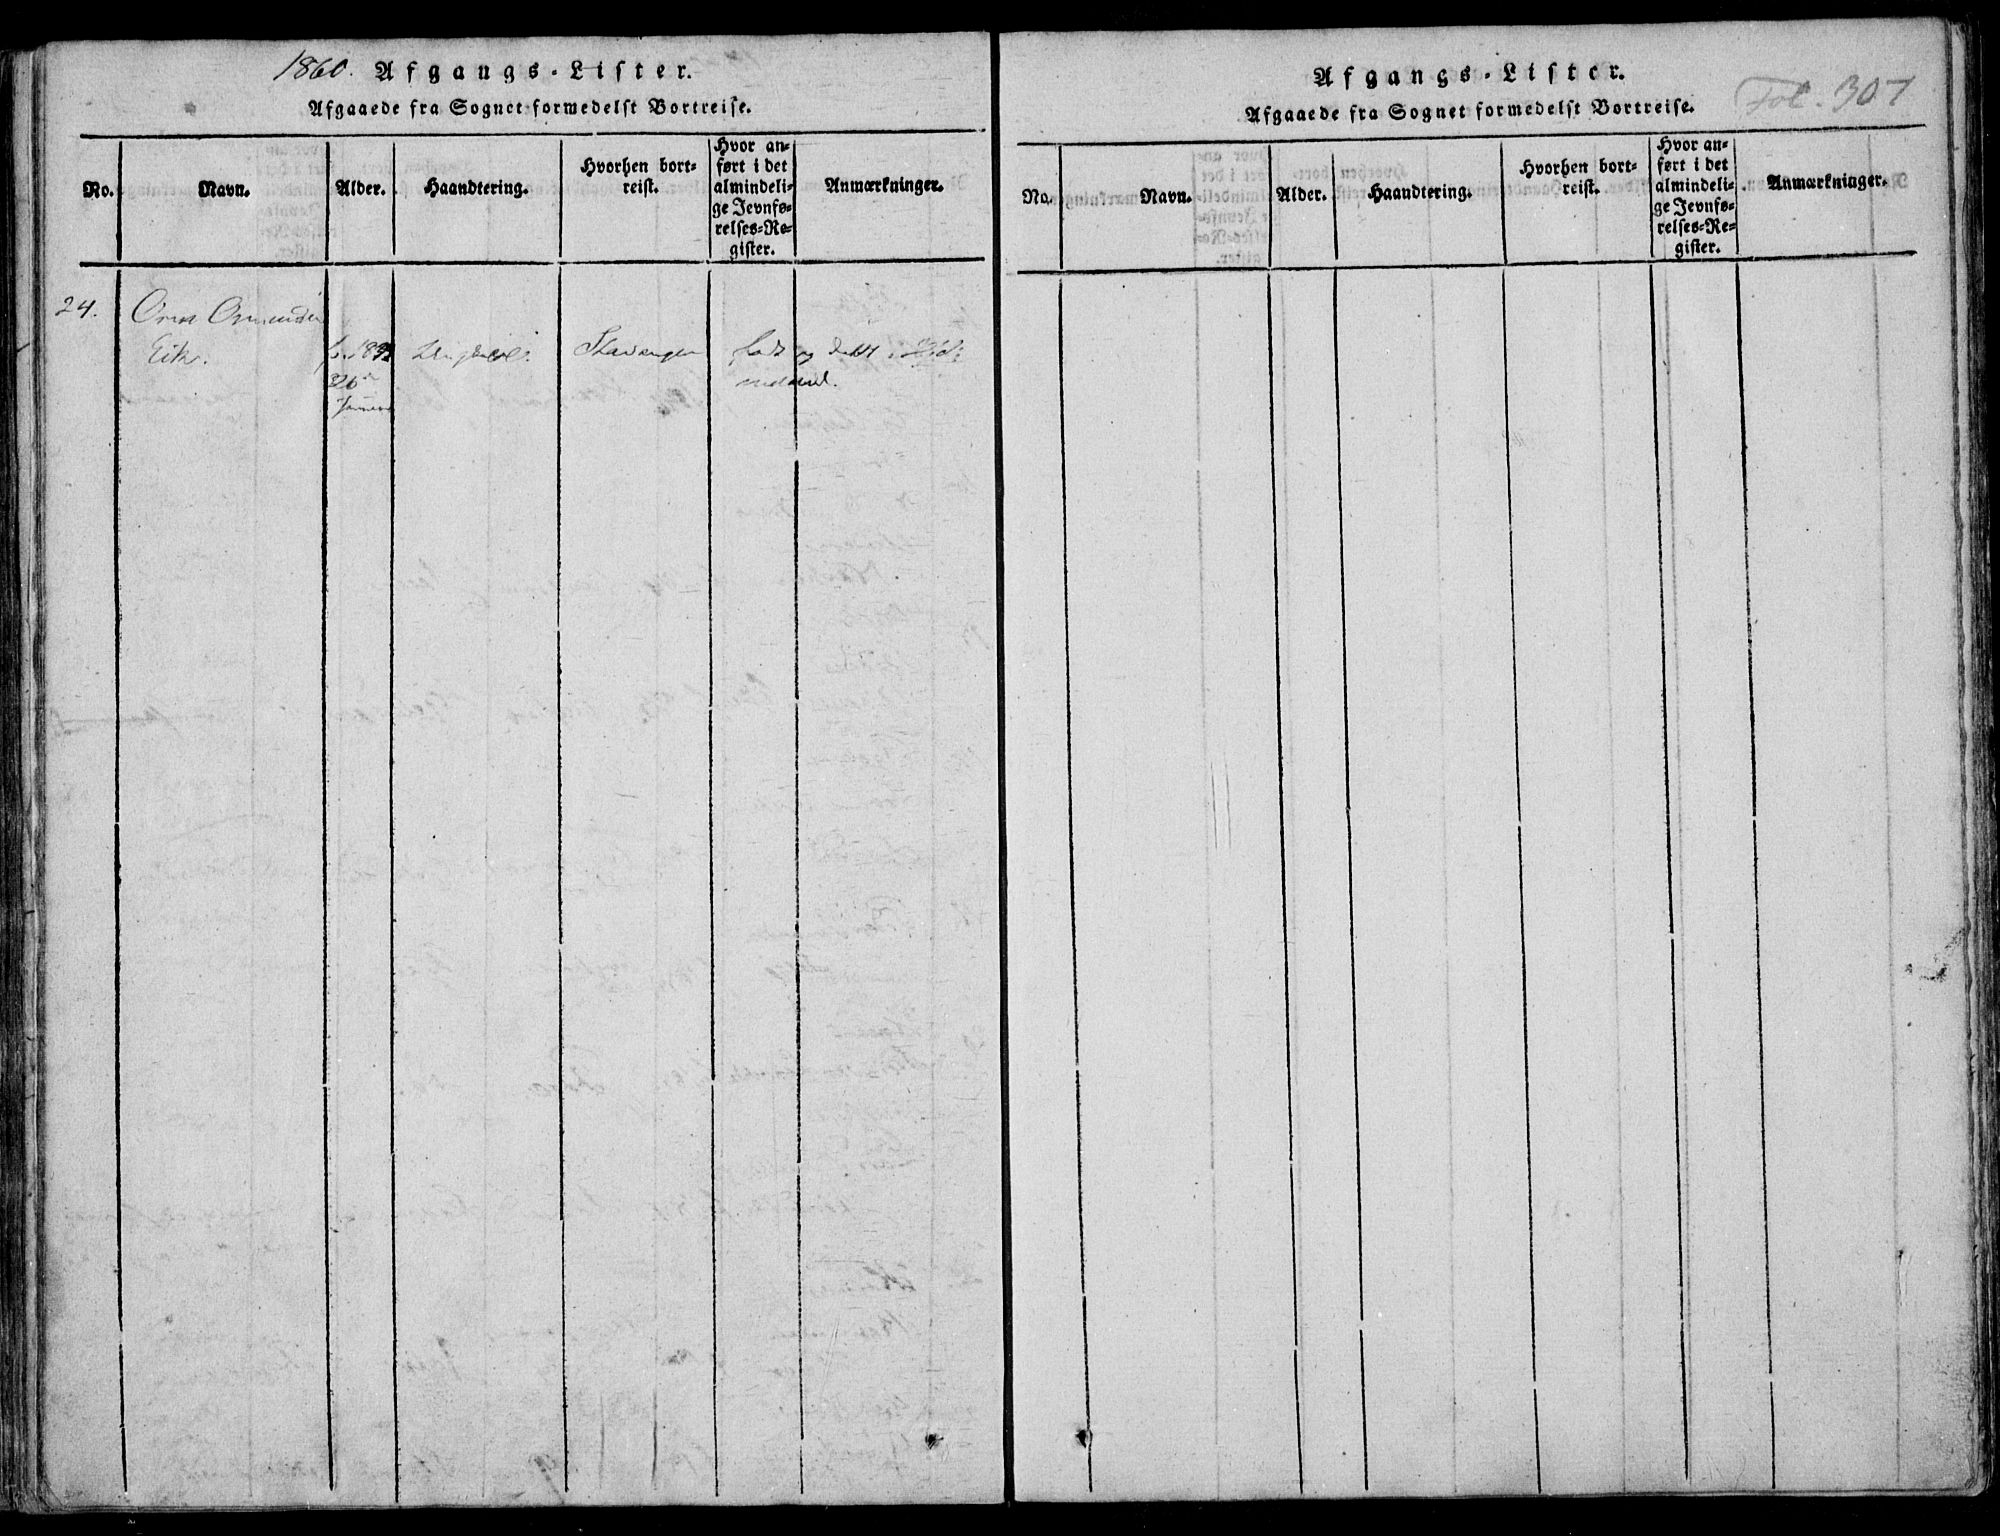 1860. Afgangs-Lister.
Afgaaede fra Sognet formedelst Bortreise.
No.
Navn.
Alder.
Haandtering.
Hvorhen bort-
reist.
Hvor an-
ført i det
almindeli-
ge Jevnfø-
relses-Re-
gister.
Anmærkninger.
24.
Eik.
Stavanger
født og døbt i
Afgangs-Lister.
Fol. 307
Afgaaede fra Sognet formedelst Bortreise.
No.
Navn.
Alder.
Haandtering.
Hvorhen bort-
reist.
Hvor an-
ført i det
almindeli-
ge Jevnfø-
relses-Re-
gister.
Anmærkninger.